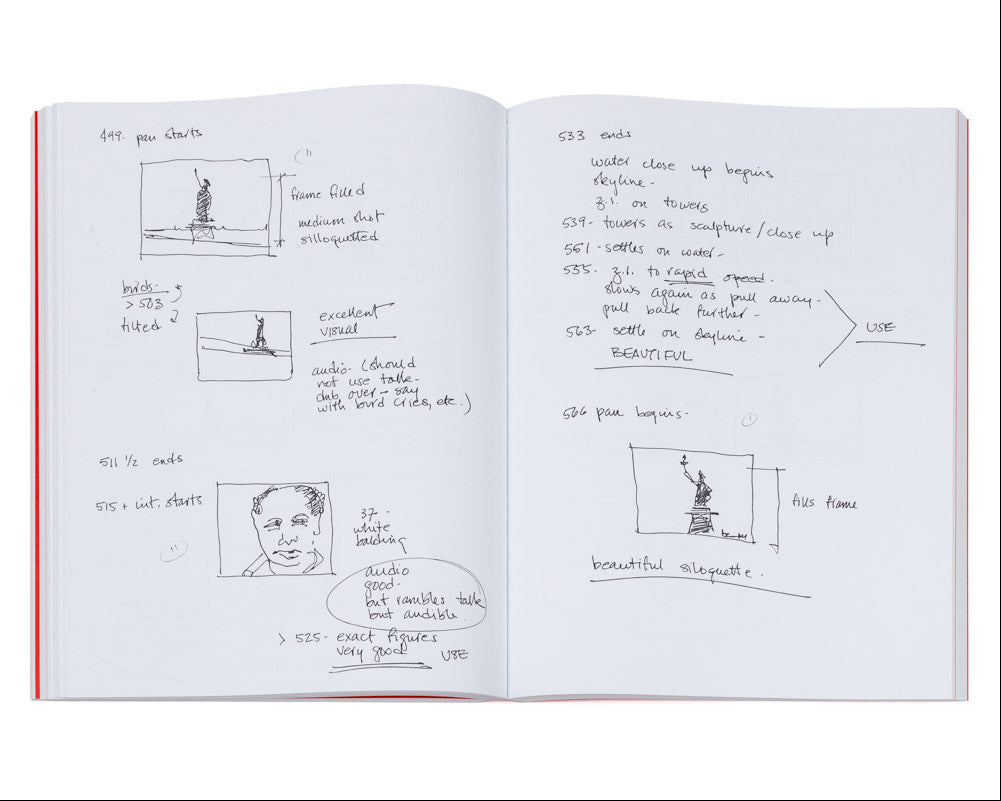 499. pan starts
frame filled
medium shot
silloquetted
birds-
> 503
tilted
excellent
visual
audio- (should
not use talk-
dub over - say
with bird cries, etc.)
511 1/2 ends
515 + int. starts
37-
white
balding
audio
good-
but rambles talk
but audible.
> 525- exact figures
very good
USE
533 ends
water close up begins
skyline-
z.i. on towers
539- towers as sculpture/close up
551- settles on water-
555- z.i. to rapid speed.
slows again as pull away-
pull back further-
563- settle on skyline-
BEAUTIFUL
USE
566 pan begins-
fills frame
beautiful siloquette.